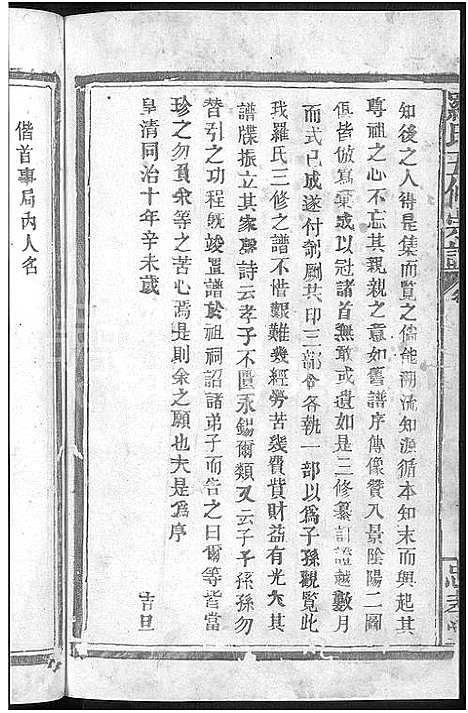 羅氏五修宗譜
知後之人得是集而覽之儒能溯流知源循本知末而興起其
尊祖之心不忘其親親之意如舊譜序傳像贊八景陰陽二圖
俱皆倣寫彙成以冠諸首無敢或遺如是三修纂訂證越數月
而式已成遂付剞劂共印三部令各執一部以為子孫觀覽此
我羅氏三修之譜不惜艱難幾經勞苦幾費貲財益有光大其
譜牒振立其家聲詩云孝子不匱永錫爾類又云子子孫孫勿
替引之功程既竣置譜於祖祠詔諸弟子而告之曰爾等當
珍之勿負余等之苦心焉是則余之願也夫是為序
皇清同治十年辛未歲　吉旦
偕首事局內人名